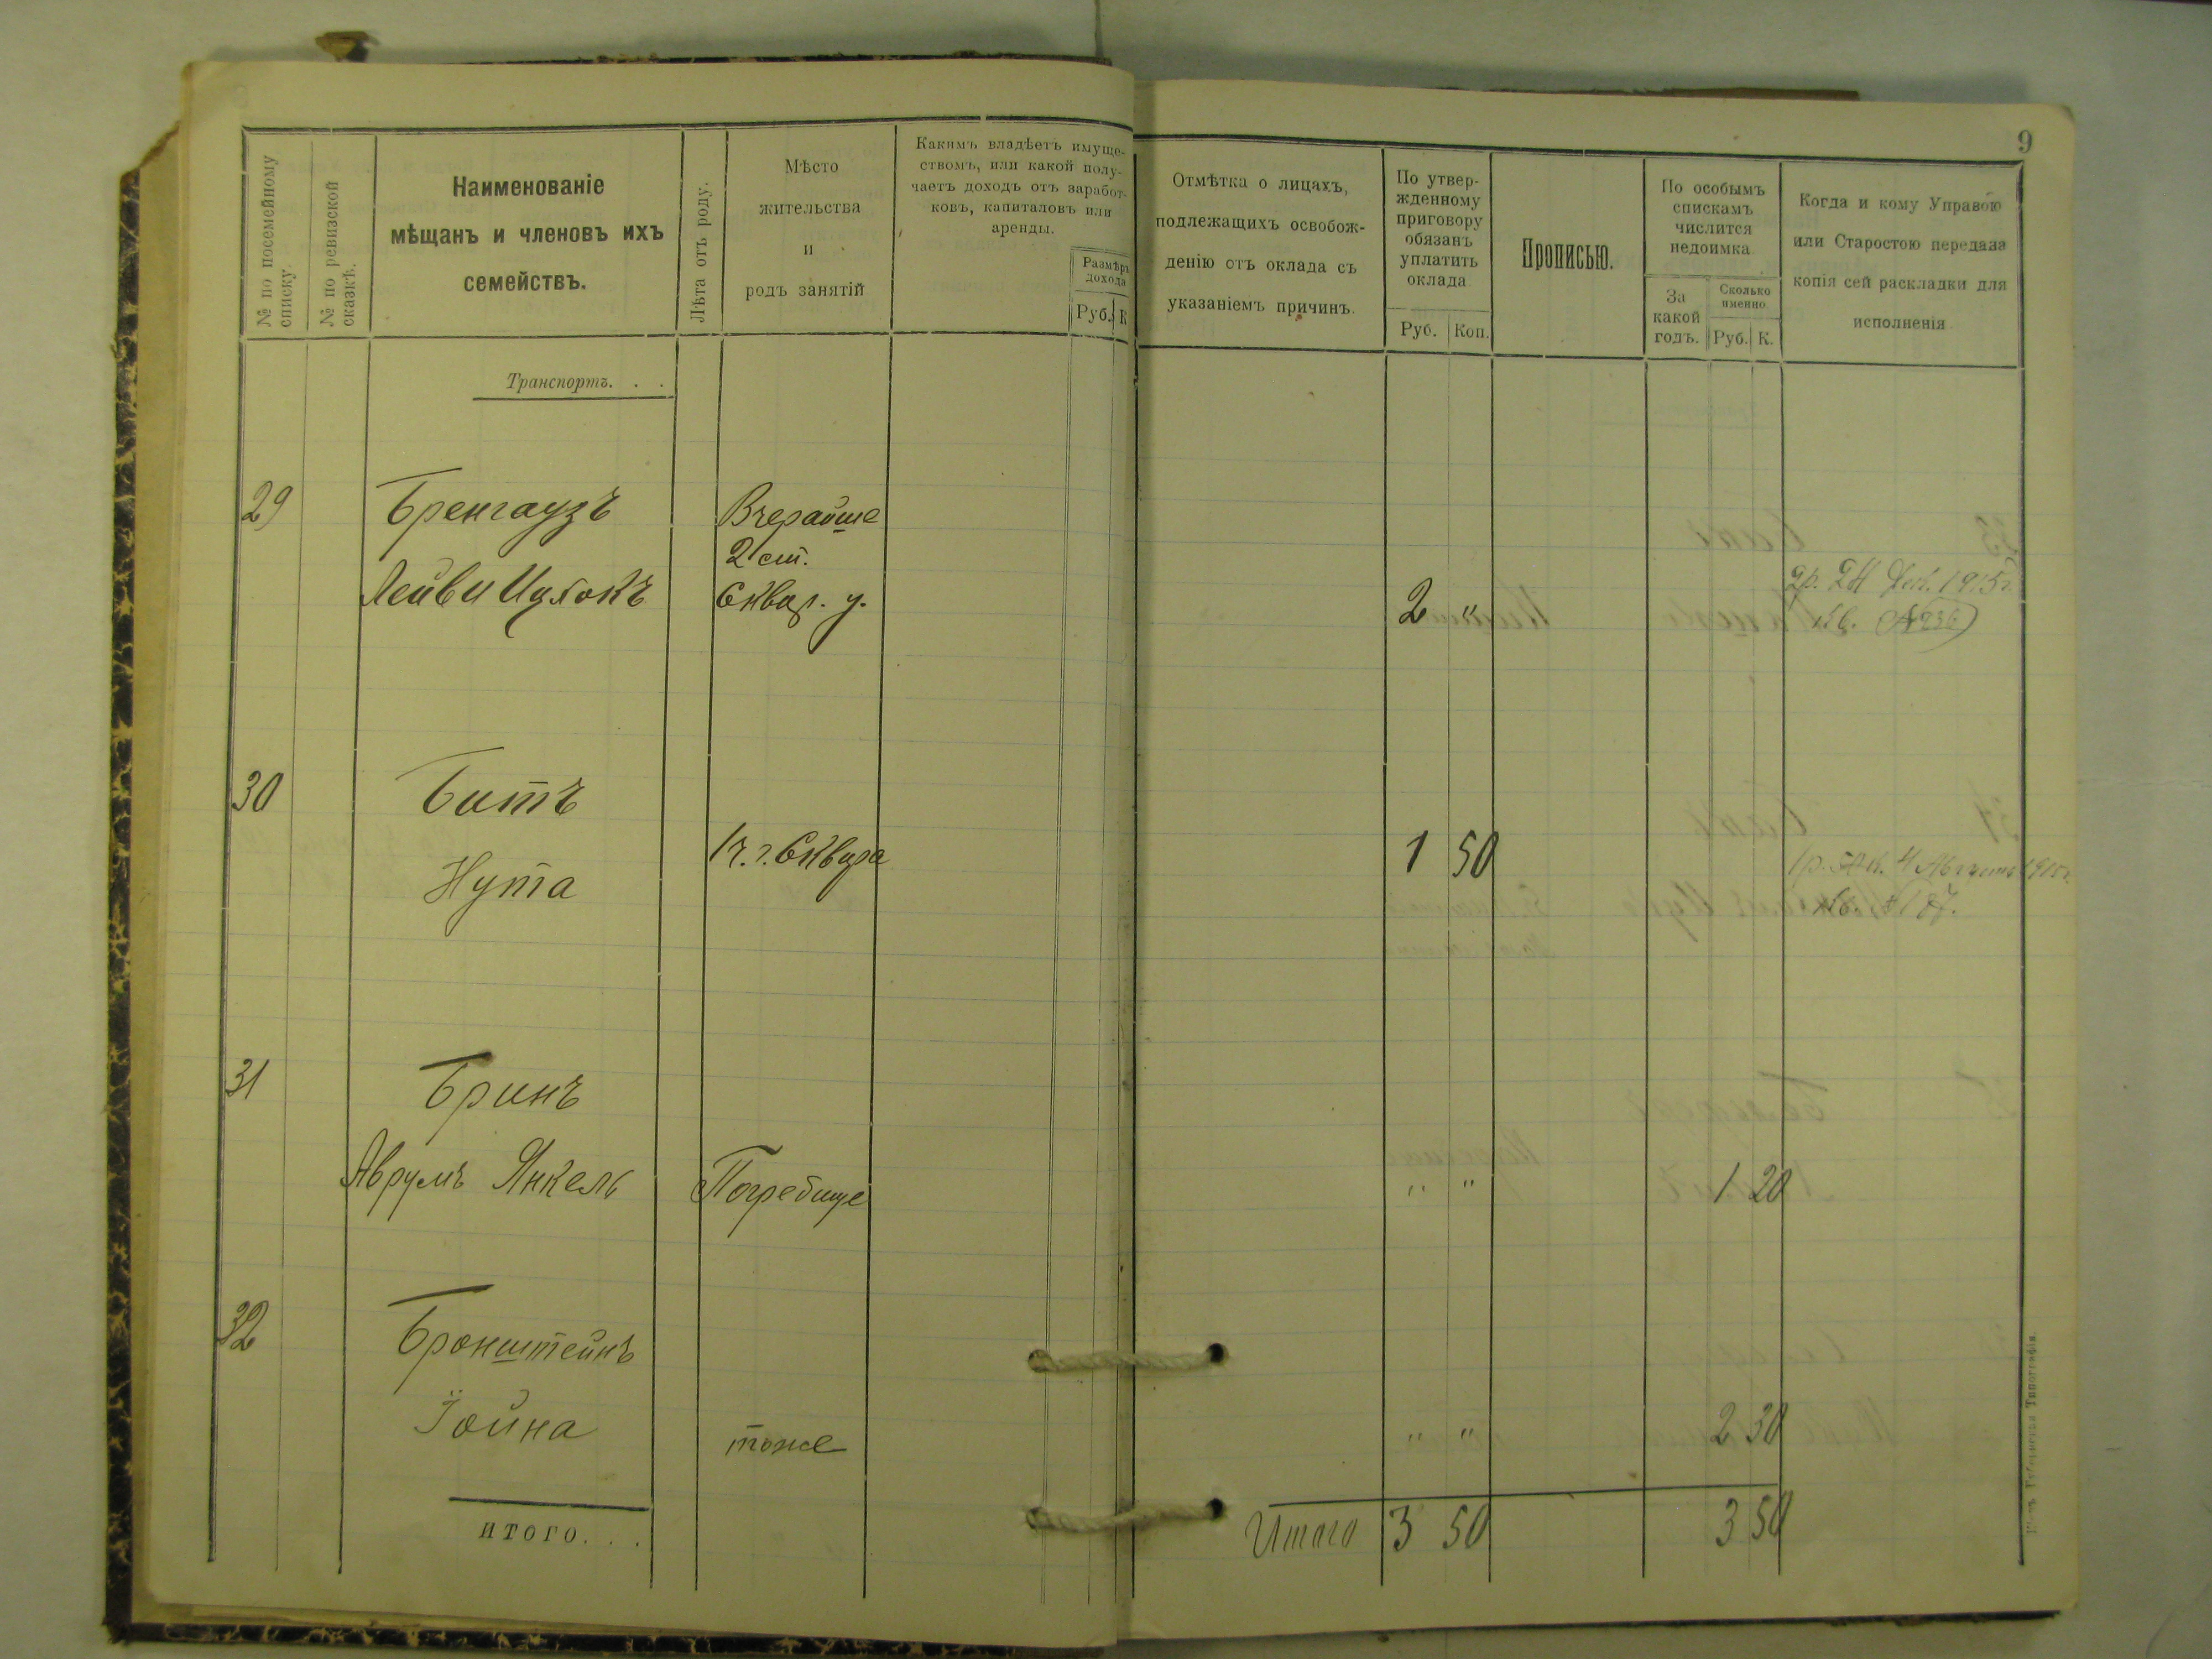 9
№ по посемейному
списку.
№ по ревизской
сказкѣ.
Наименованіе
мѣщанъ и членовъ ихъ
семействъ.
Лѣта отъ роду.
Мѣсто
жительства
и
родъ занятій
Какимъ владѣетъ имуще-
ствомъ, или какой полу-
чаетъ доходъ отъ заработ-
ковъ, капиталовъ или
аренды.
Размѣръ
дохода
Руб. К
Отмѣтка о лицахъ,
подлежащихъ освобож-
денію отъ оклада съ
указаніемъ причинъ.
По утвер-
жденному
приговору
обязанъ
уплатить
оклада
Руб. Коп.
Прописью.
По особымъ
спискамъ
числится
недоимка
За
какой
годъ.
Сколько
именно.
Руб. К.
Когда и кому Управою
или Старостою передана
копія сей раскладки для
исполненія
Транспортъ. . .
29 Бренгаузъ Вчерайше
2 ст.
Лейви Ицхокъ Сквир. у. 2 "
2р. 24 Дек. 1915г.
кв. №236
30 Битъ
Нута г. Сквира 1 50
1р. 50 к. 4 Августа 1915г.
кв. № 187.
31 Бринъ
Аврумъ Янкель Погребище " " 1 20
32 Бронштейнъ
Іойна тоже " " 2 30
ИТОГО. . .
Итого 3 50 3 50
Губернская Типографія.